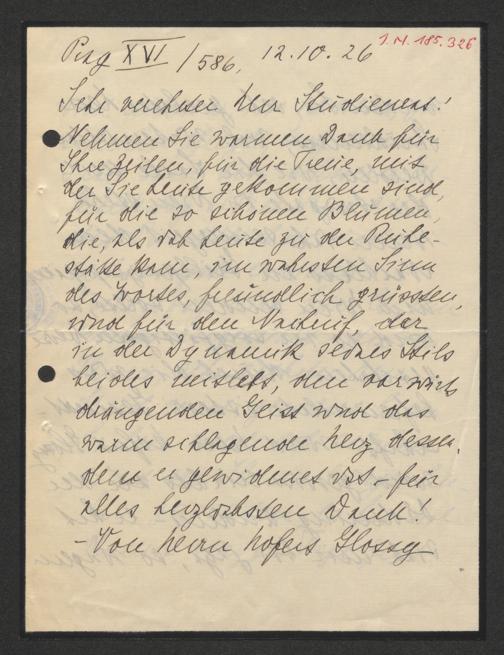 Prag XVI/586, 12.10.26
I.N. 185.326
Sehr verehrter Herr Studienrat!
Nehmen Sie warmen Dank für
Ihre Zeilen, für die Treue, mit
der Sie heute gekommen sind,
für die so schönen Blumen,
die, als ich heute zu der Ruhe-
stätte kam, im wahrsten Sinn
des Wortes, freundlich grüssten,
und für den Nachruf, der
in der Dynamik seines Stils
beides mitlebt, den vorwärts
drängenden Geist und das
warm schlagende Herz dessen,
dem er gewidmet ist – für
alles herzlichsten Dank!
– Von Herrn Hofrat Glossy